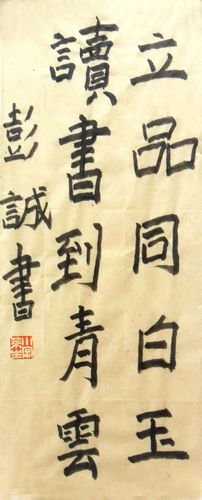 立品同白玉
讀書到青雲
彭誠書